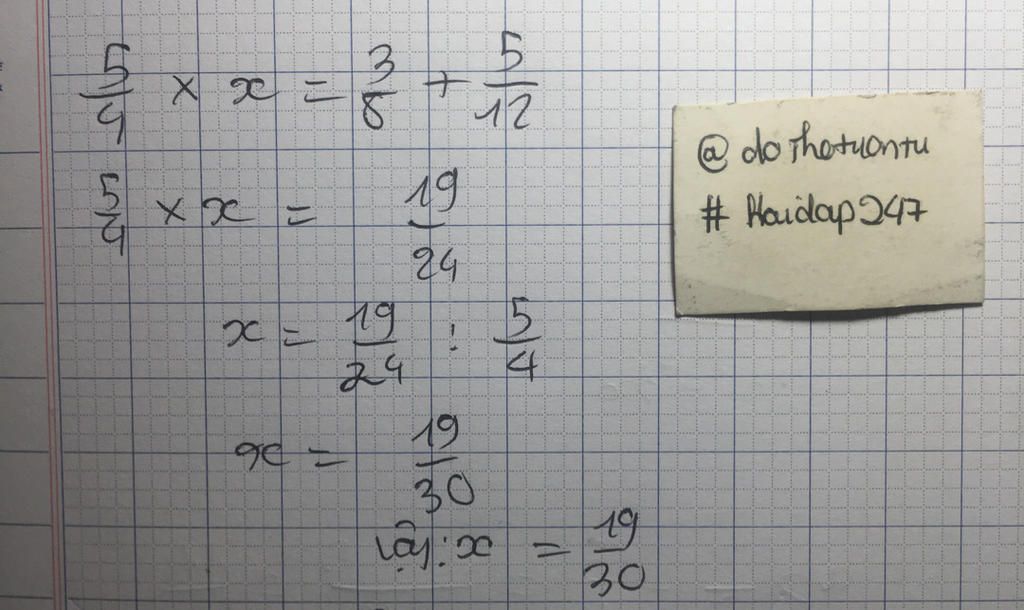 5/4 × x = 3/8 + 5/12
5/4 × x = 19/24
x = 19/24 : 5/4
x = 19/30
Vậy: x = 19/30
@dothetuantu
#Hoidap247